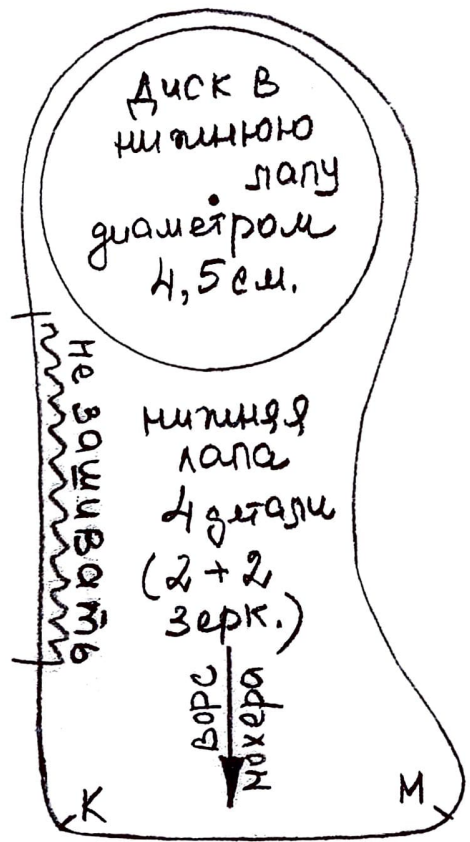 Диск в
нижнюю
лапу
диаметром
4,5 см.
не зашивать
нижняя
лапа
4 детали
(2 + 2
зерк.)
ворс
мохера
К
М